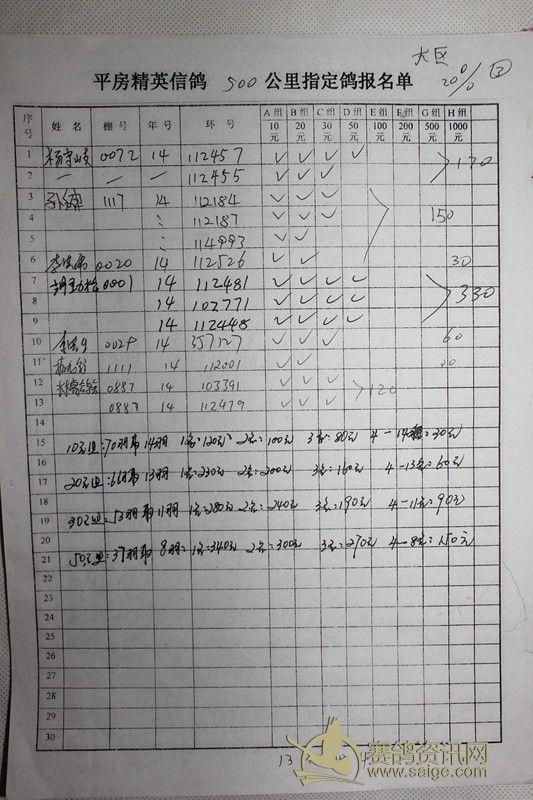 大区
20%
平房精英信鸽 500 公里指定鸽报名单
序号 姓名 棚号 年号 环号 A组10元 B组20元 C组30元 D组50元 E组100元 F组200元 G组500元 H组1000元
1 0072 14 112457 ✓ ✓ ✓ ✓ 170
2 一 一 一 112455 ✓ ✓ ✓
3 1117 14 112184 ✓ ✓ ✓
4 112187 ✓ ✓ ✓ 150
5 114993 ✓ ✓
6 0020 14 112526 ✓ ✓ 30
7 0001 14 112481 ✓ ✓ ✓ ✓
8 14 102771 ✓ ✓ ✓ ✓ 330
9 14 112448 ✓ ✓ ✓ ✓
10 14 357127 ✓ ✓ ✓ 60
11 1111 14 112001 ✓ ✓
12 0887 14 103391 ✓ ✓ ✓ 120
13 0887 14 112479 ✓ ✓ ✓
14
15 10元组:70羽 14羽 1名:120元 2名:100元 3名:80元 4-14名:30元
16
17 20元组:66羽 13羽 1名:230元 2名:200元 3名:160元 4-13名:60元
18
19 30元组:53羽 11羽 1名:280元 2名:240元 3名:190元 4-11名:90元
20
21 50元组:37羽 8羽 1名:340元 2名:300元 3名:270元 4-8名:150元
22
23
24
25
26
27
28
29
30
13
赛鸽资讯网
www.saige.com